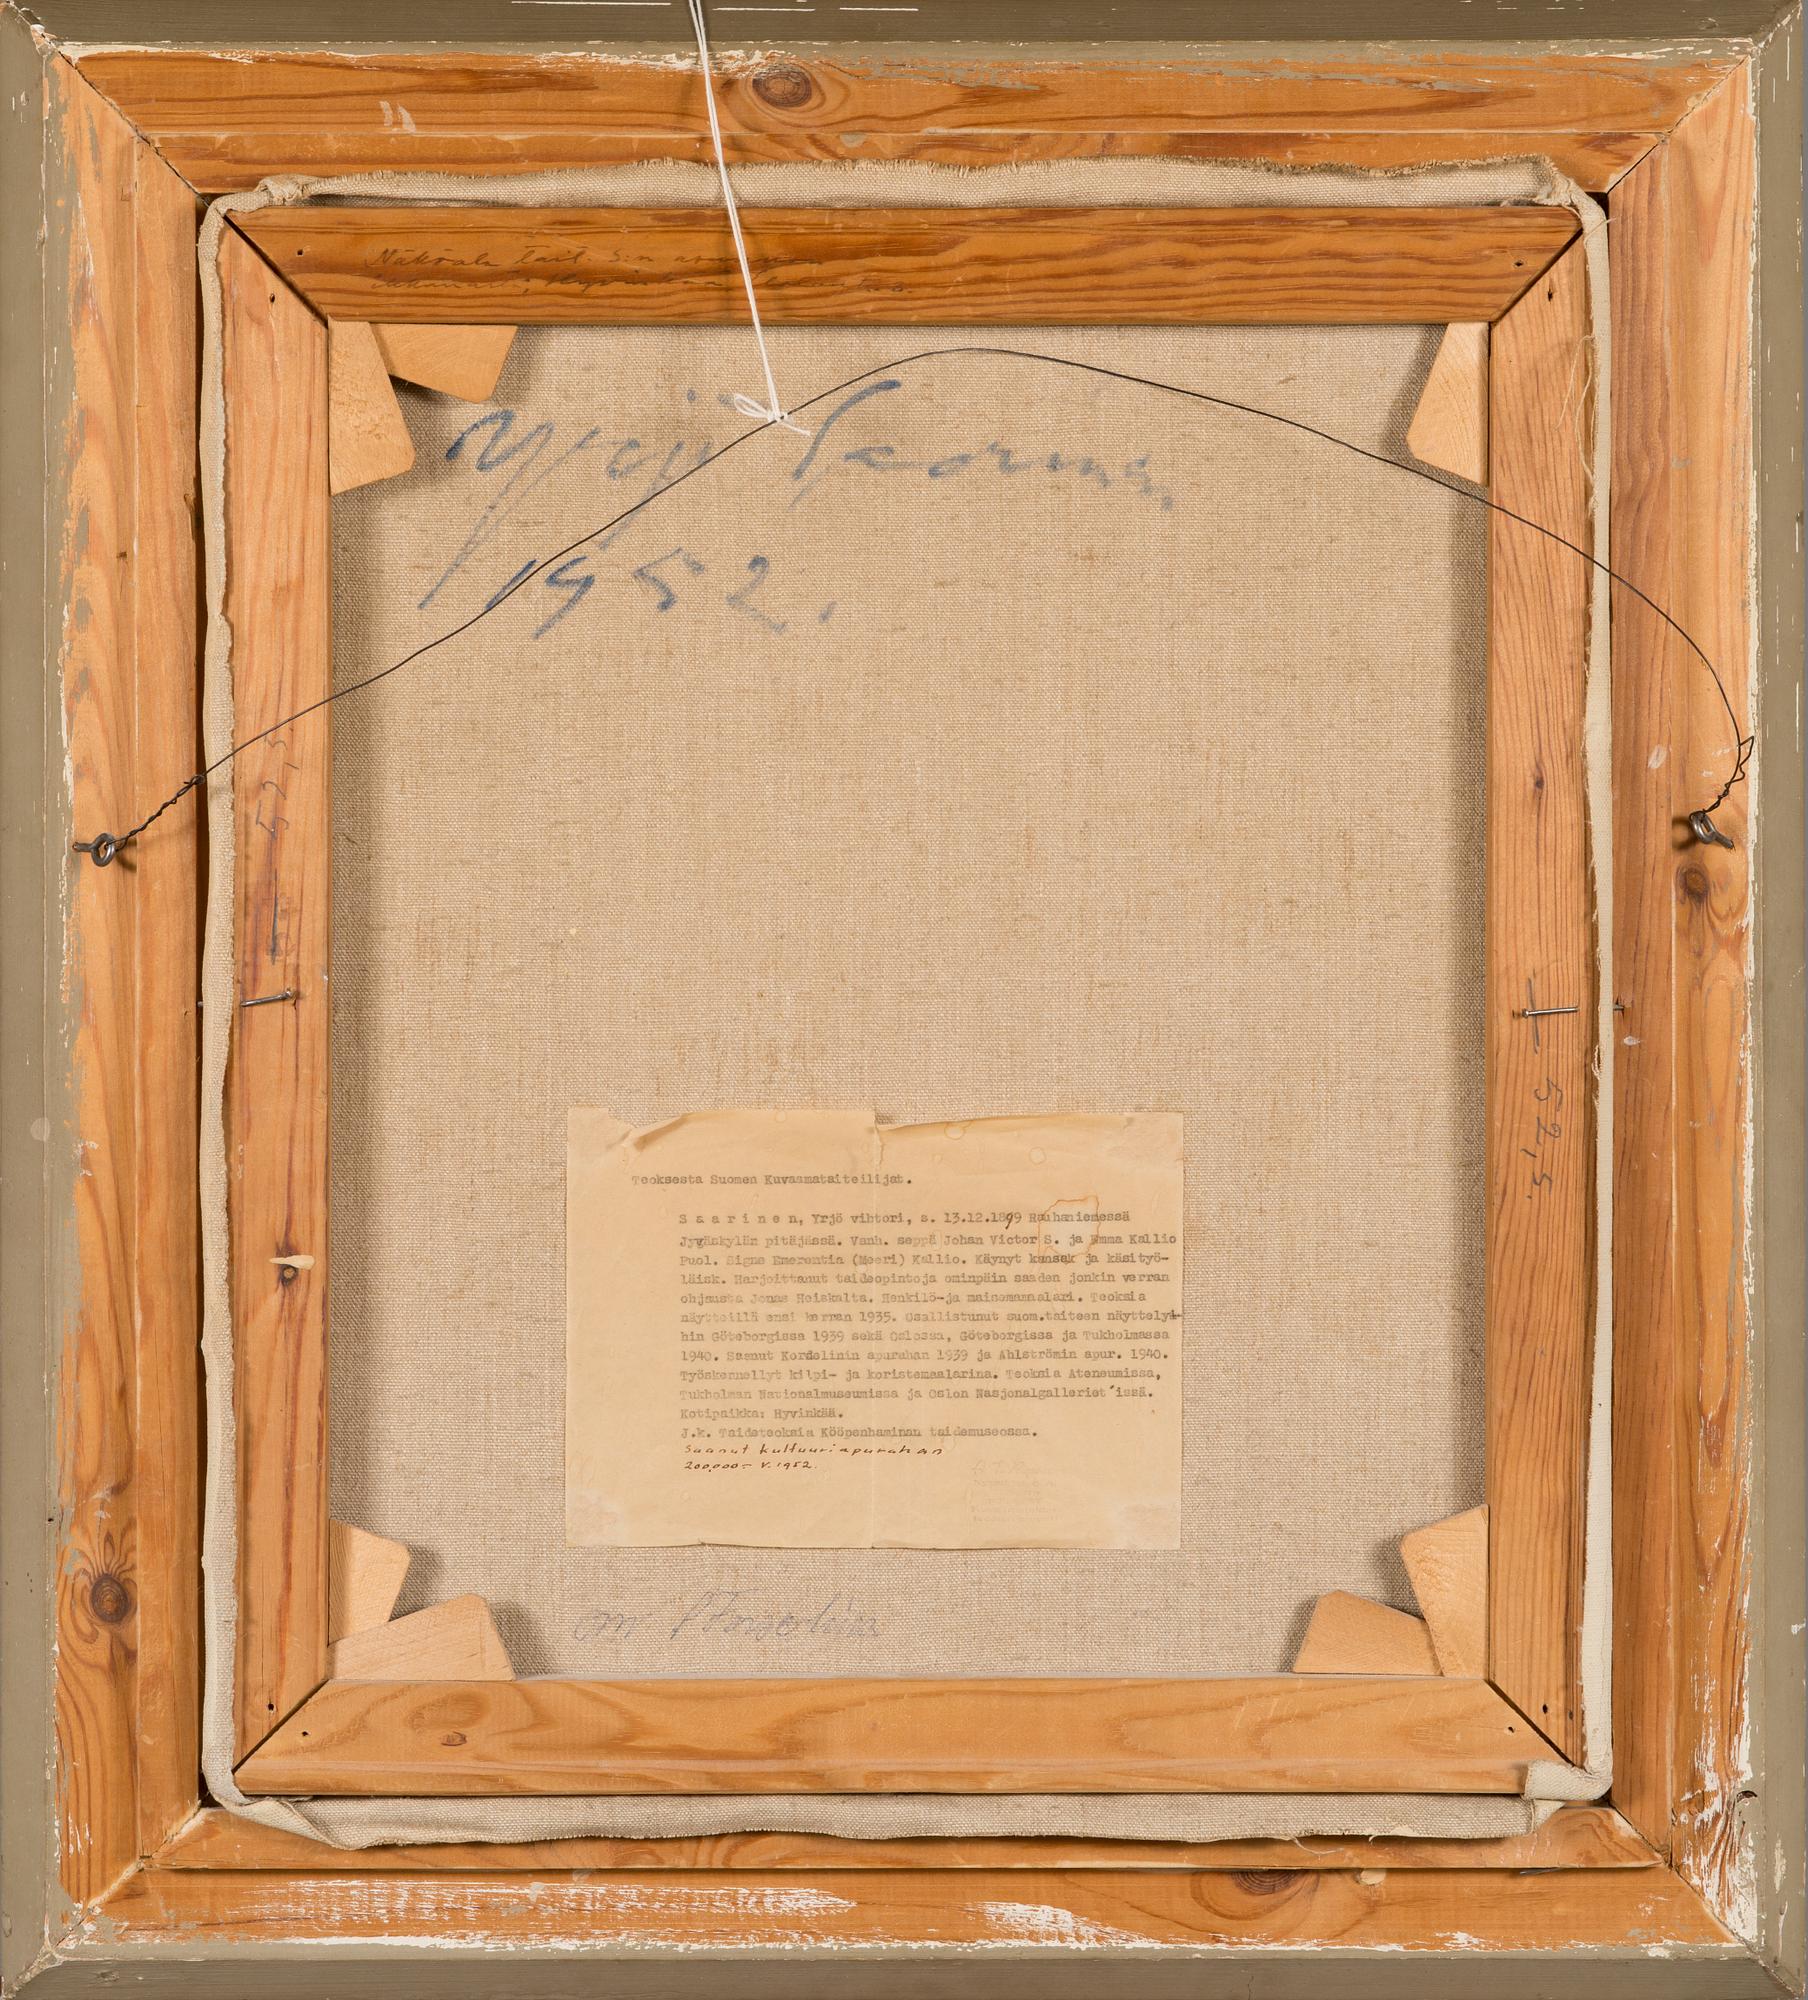 Näköala tait. S:n asunnon
ikkunasta, Hyvinkää
Yrjö Saarinen
1952.
52,5
52,5.
Teoksesta Suomen Kuvaamataiteilijat.
S a a r i n e n, Yrjö vihtori, s. 13.12.1899 Rauhaniemessä
Jygäskylän pitäjässä. Vanh. seppä Johan Victor S. ja Emma Kallio
Puol. Signe Emerentia (Meeri) Kallio. Käynyt kansak ja käsityö-
läisk. Harjoittanut taideopintoja ominpäin saaden jonkin verran
ohjausta Jonas Heiskalta. Henkilö-ja maisemamaalari. Teoksia
näytteillä ensi kerran 1935. Osallistunut suom.taiteen näyttelyi-
hin Göteborgissa 1939 sekä Oslossa, Göteborgissa ja Tukholmassa
1940. Saanut Kordelinin apurahan 1939 ja Ahlströmin apur. 1940.
Työskennellyt kilpi- ja koristemaalarina. Teoksia Ateneumissa,
Tukholman Nationalmuseumissa ja Oslon Nasjonalgalleriet´issä.
Kotipaikka: Hyvinkää.
J.k. Taideteoksia Kööpenhaminan taidemuseossa.
Saanut kulttuuriapurahan
200,000:- v. 1952.
om.